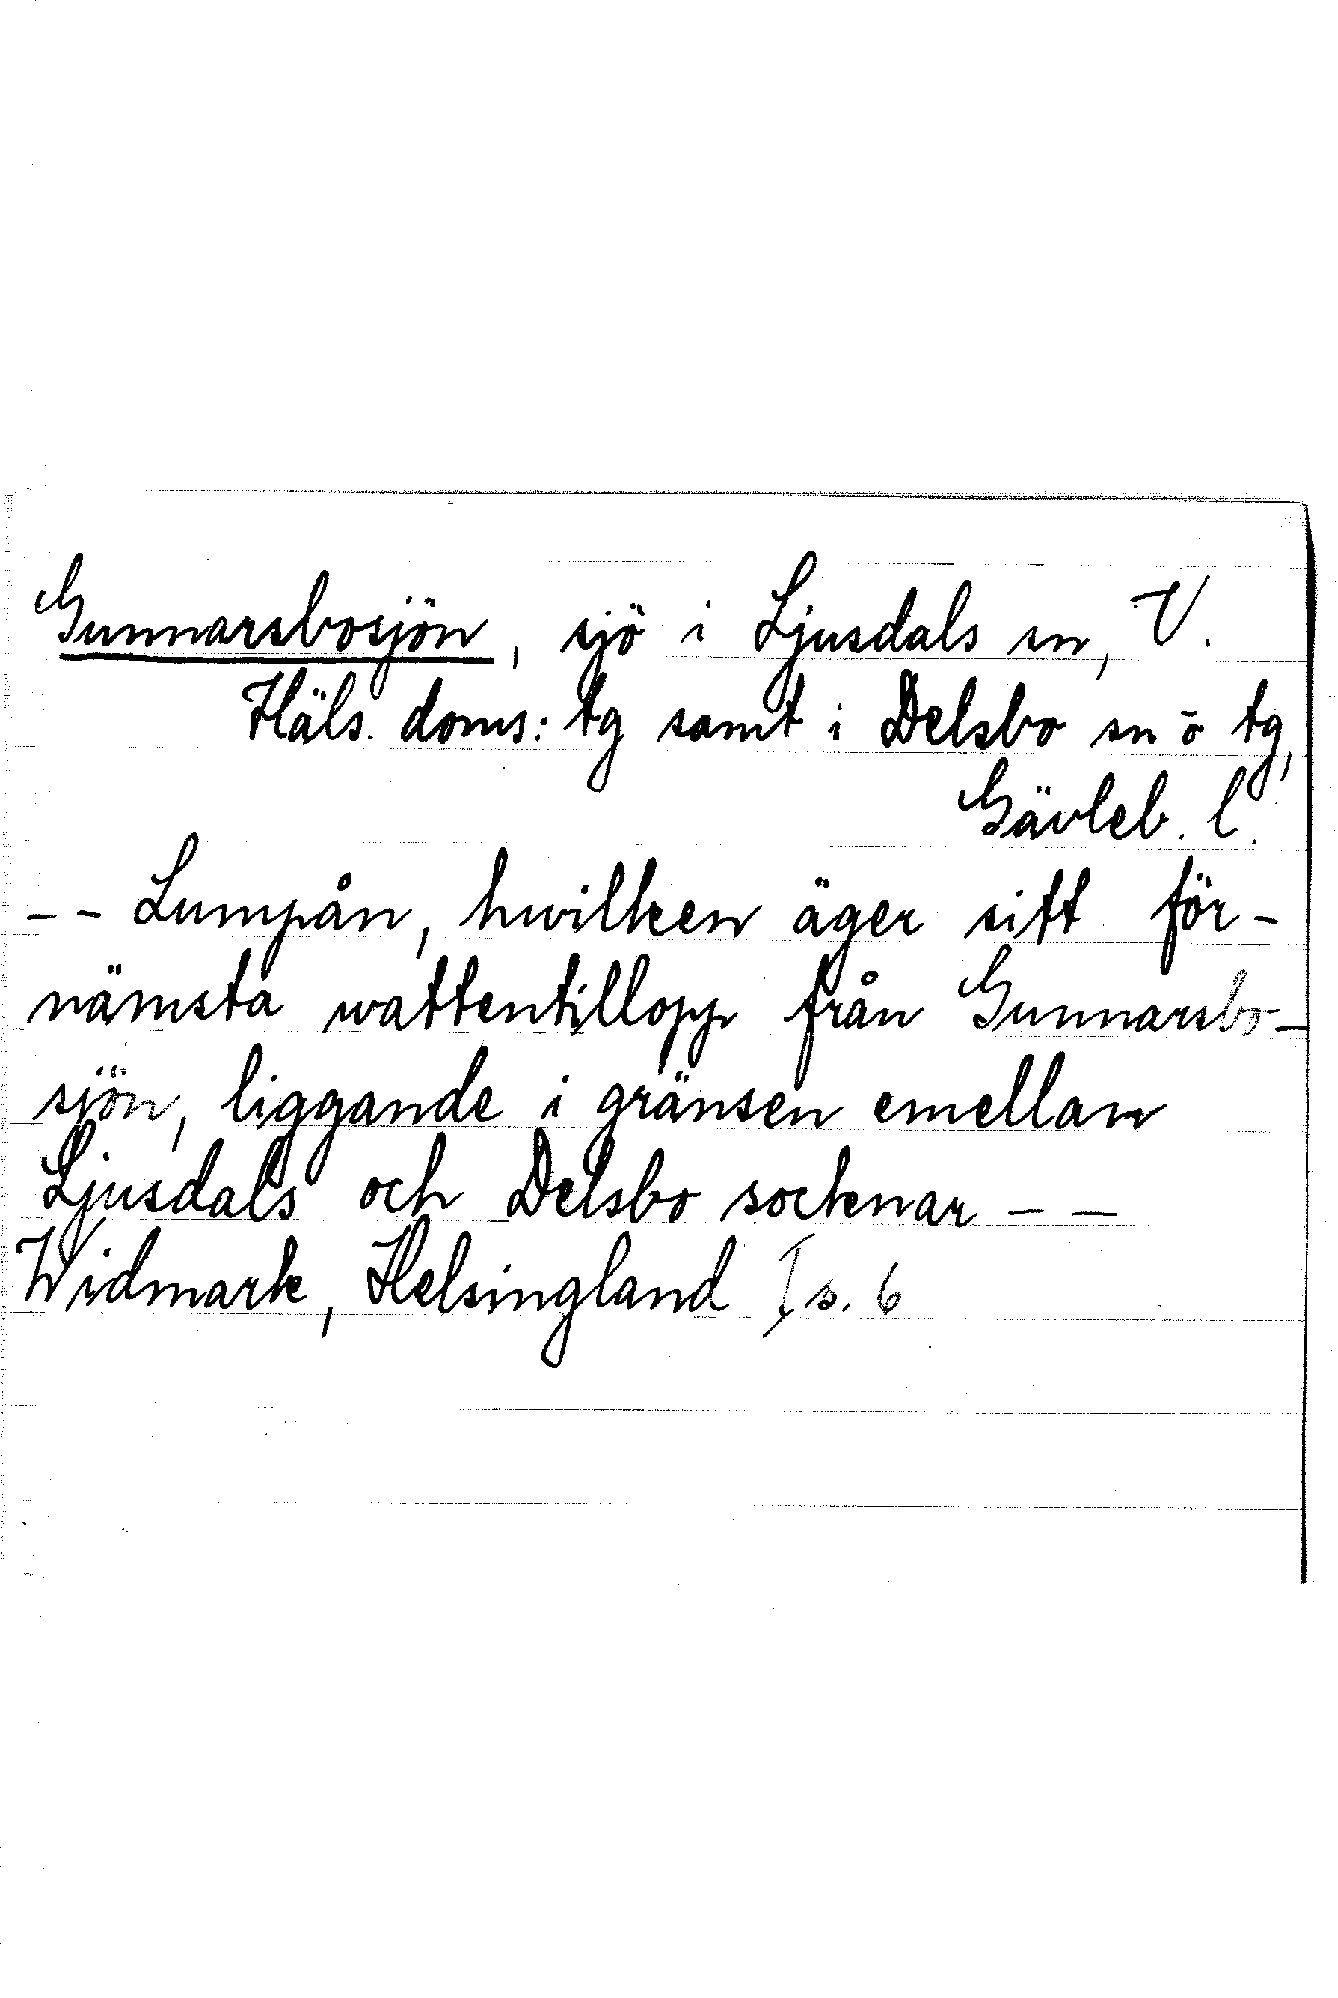 Gunnarsbosjön, sjö i Ljusdals sn, V.
Häls. doms:tg samt i Delsbo sn ō tg,
Gävleb. l.
-- Lumpån, hwilken äger sitt för-
nämsta wattentillopp från Gunnarsbo-
sjön, liggande i gränsen emellan
Ljusdals och Delsbo socknar --
Widmark, Helsingland I s. 6